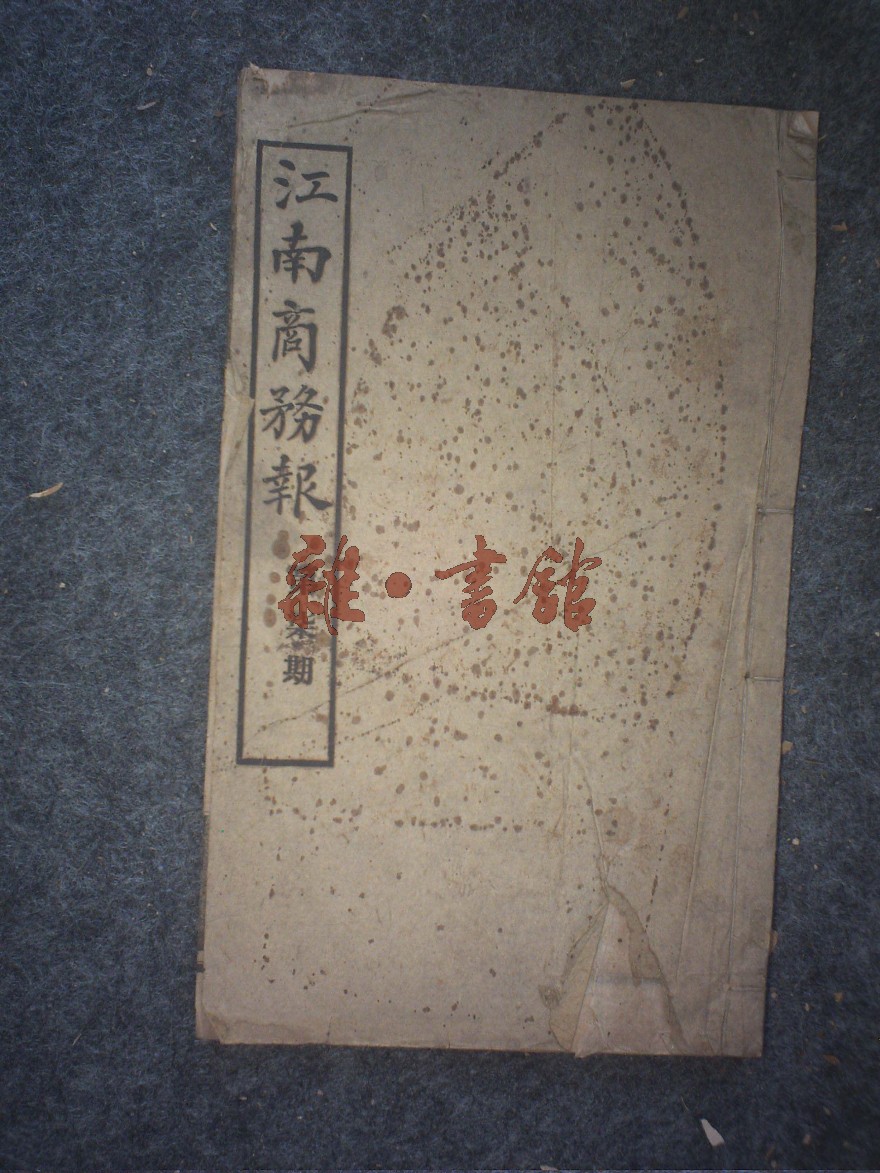 江南商務報
期
雜·書館